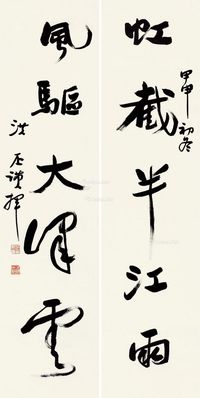 虹截半江雨
甲申初冬
風驅大澤雲
洪石謹揮